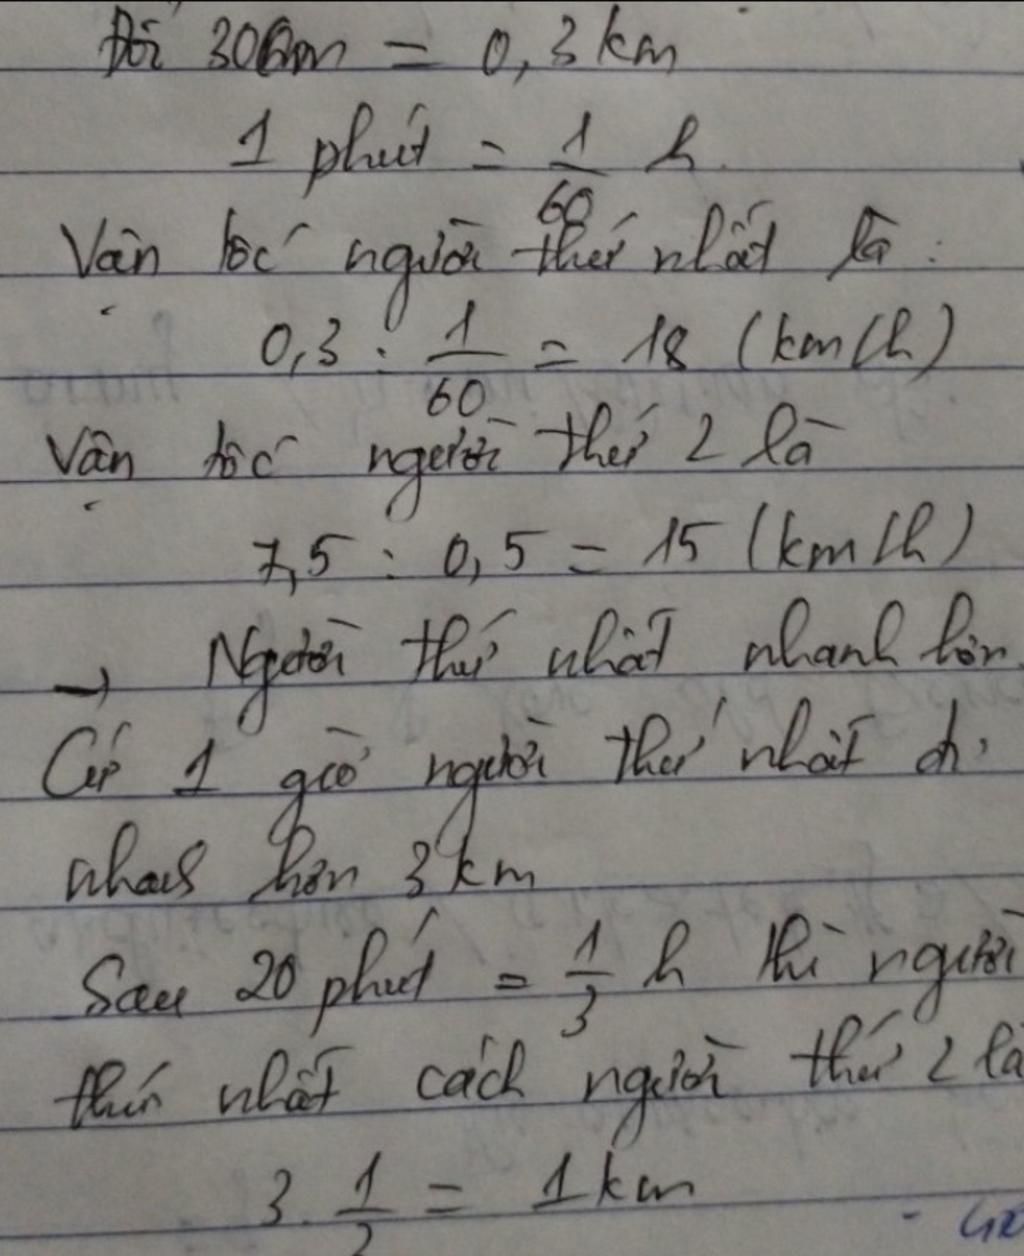 Đổi 300m = 0,3 km
1 phút = 1/60 h.
Vận tốc người thứ nhất là :
0,3 : 1/60 = 18 (km/h)
Vận tốc người thứ 2 là
7,5 : 0,5 = 15 (km/h)
→ Người thứ nhất nhanh hơn.
Cứ 1 giờ người thứ nhất đi
nhanh hơn 3 km
Sau 20 phút = 1/3 h thì người
thứ nhất cách người thứ 2 là
3. 1/3 = 1 km